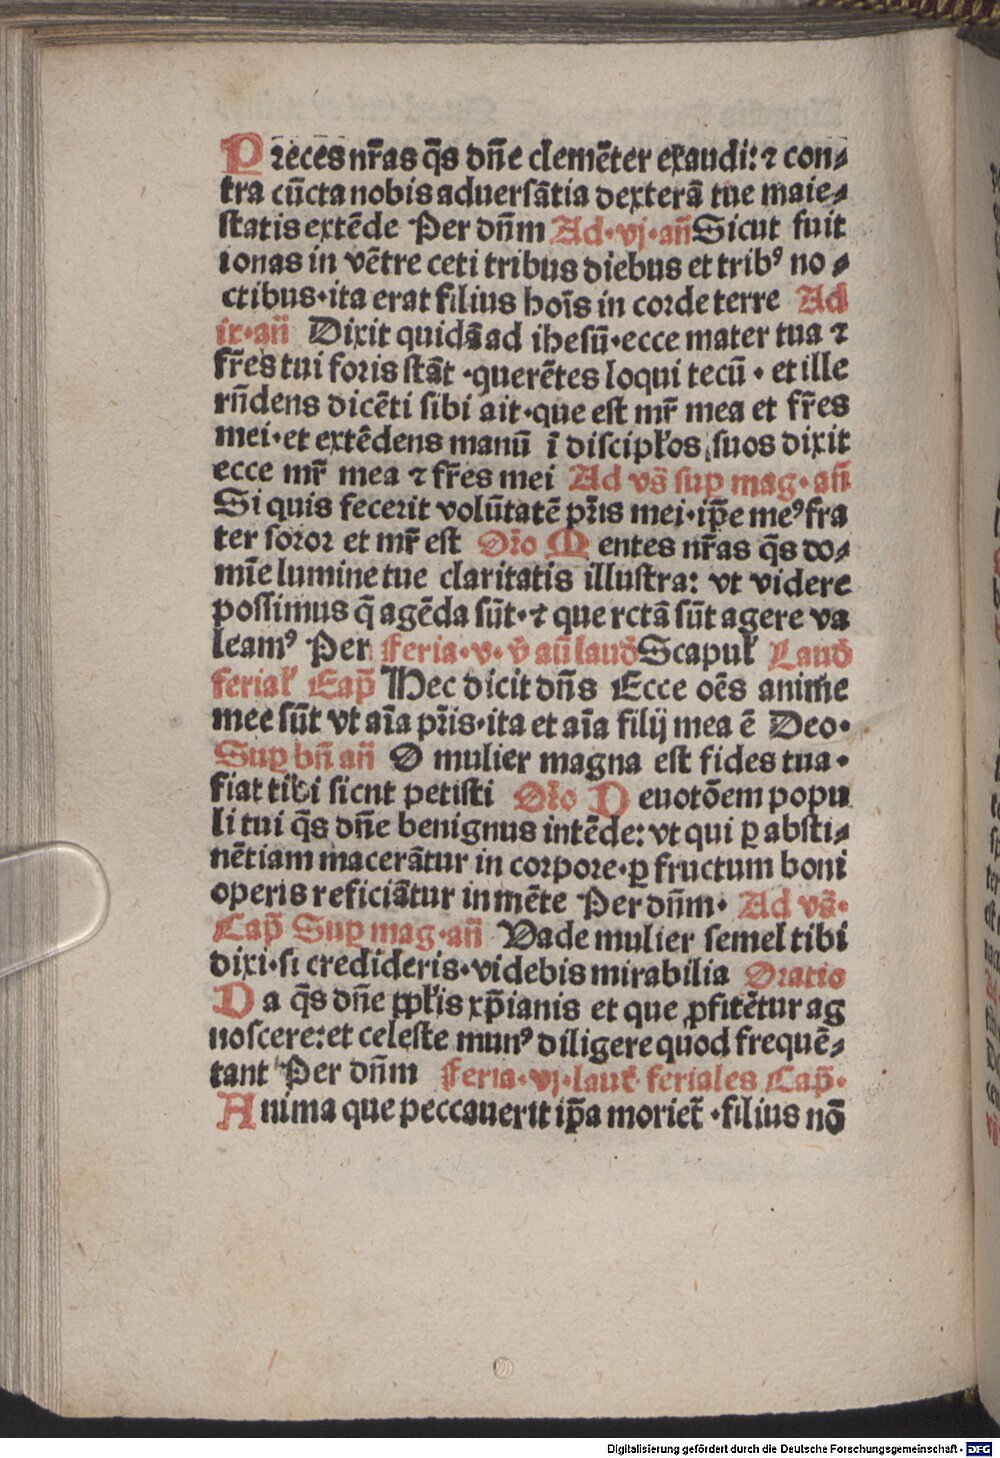 Preces nr̄as q̄s dn̄e clemēter exaudi: ⁊ con⸗
tra cūcta nobis aduersātia dexterā tue maie⸗
statis extēde Per dn̄m Ad·vj·an̄ Sicut fuit
ionas in vētre ceti tribus diebus et tribꝰ no⸗
ctibus·ita erat filius hoīs in corde terre Ad
ix·an̄ Dixit quidā ad ihesū·ecce mater tua ⁊
fr̄es tui foris stāt ·querētes loqui tecū · et ille
rn̄dens dicēti sibi ait·que est mr̄ mea et fr̄es
mei·et extēdens manū ī discipl̄os suos dixit
ecce mr̄ mea ⁊ fr̄es mei Ad vs̄ sup mag·an̄
Si quis fecerit volūtatē pr̄is mei·ip̄e meꝰ fra
ter soror et mr̄ est Or̄o Mentes nr̄as q̄s do⸗
mīe lumine tue claritatis illustra: vt videre
possimus q̄ agēda sūt·⁊ que rctā sūt agere va
leamꝰ Per Feria·v·v̄ an̄ laud̄ Scapul̄ Laud̄
ferial̄ Cap̄ Hec dicit dn̄s Ecce oēs anime
mee sūt vt aīa pr̄is·ita et aīa filij mea ē Deo·
Sup bn̄ an̄ O mulier magna est fides tua·
fiat tibi sicnt petisti Or̄o Deuotōem popu
li tui q̄s dn̄e benignus intēde: vt qui ꝑ absti⸗
nētiam macerātur in corpore·ꝑ fructum boni
operis reficiātur in mēte Per dn̄m· Ad vs̄·
Cap̄ Sup mag·an̄ Vade mulier semel tibi
dixi·si credideris·videbis mirabilia Oratio
Da q̄s dn̄e ppl̄is xp̄ianis et que ꝓfitētur ag
noscere: et celeste munꝰ diligere quod frequē⸗
tant Per dn̄m Feria·vj·laut̄ feriales Cap̄·
Anima que peccauerit ip̄a moriet̄ ·filius nō
Digitalisierung gefördert durch die Deutsche Forschungsgemeinschaft · DFG